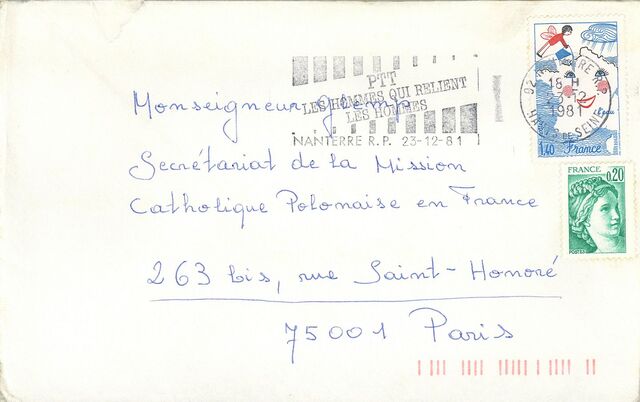 PTT
LES HOMMES QUI RELIENT
LES HOMMES
NANTERRE R.P. 23-12-81
18 H
1981
HAUTS DE SEINE
1,40 France
FRANCE
0,20
POSTES
Monseigneur Glemp
Secrétariat de la Mission
Catholique Polonaise en France
263 bis, rue Saint-Honoré
75001 Paris